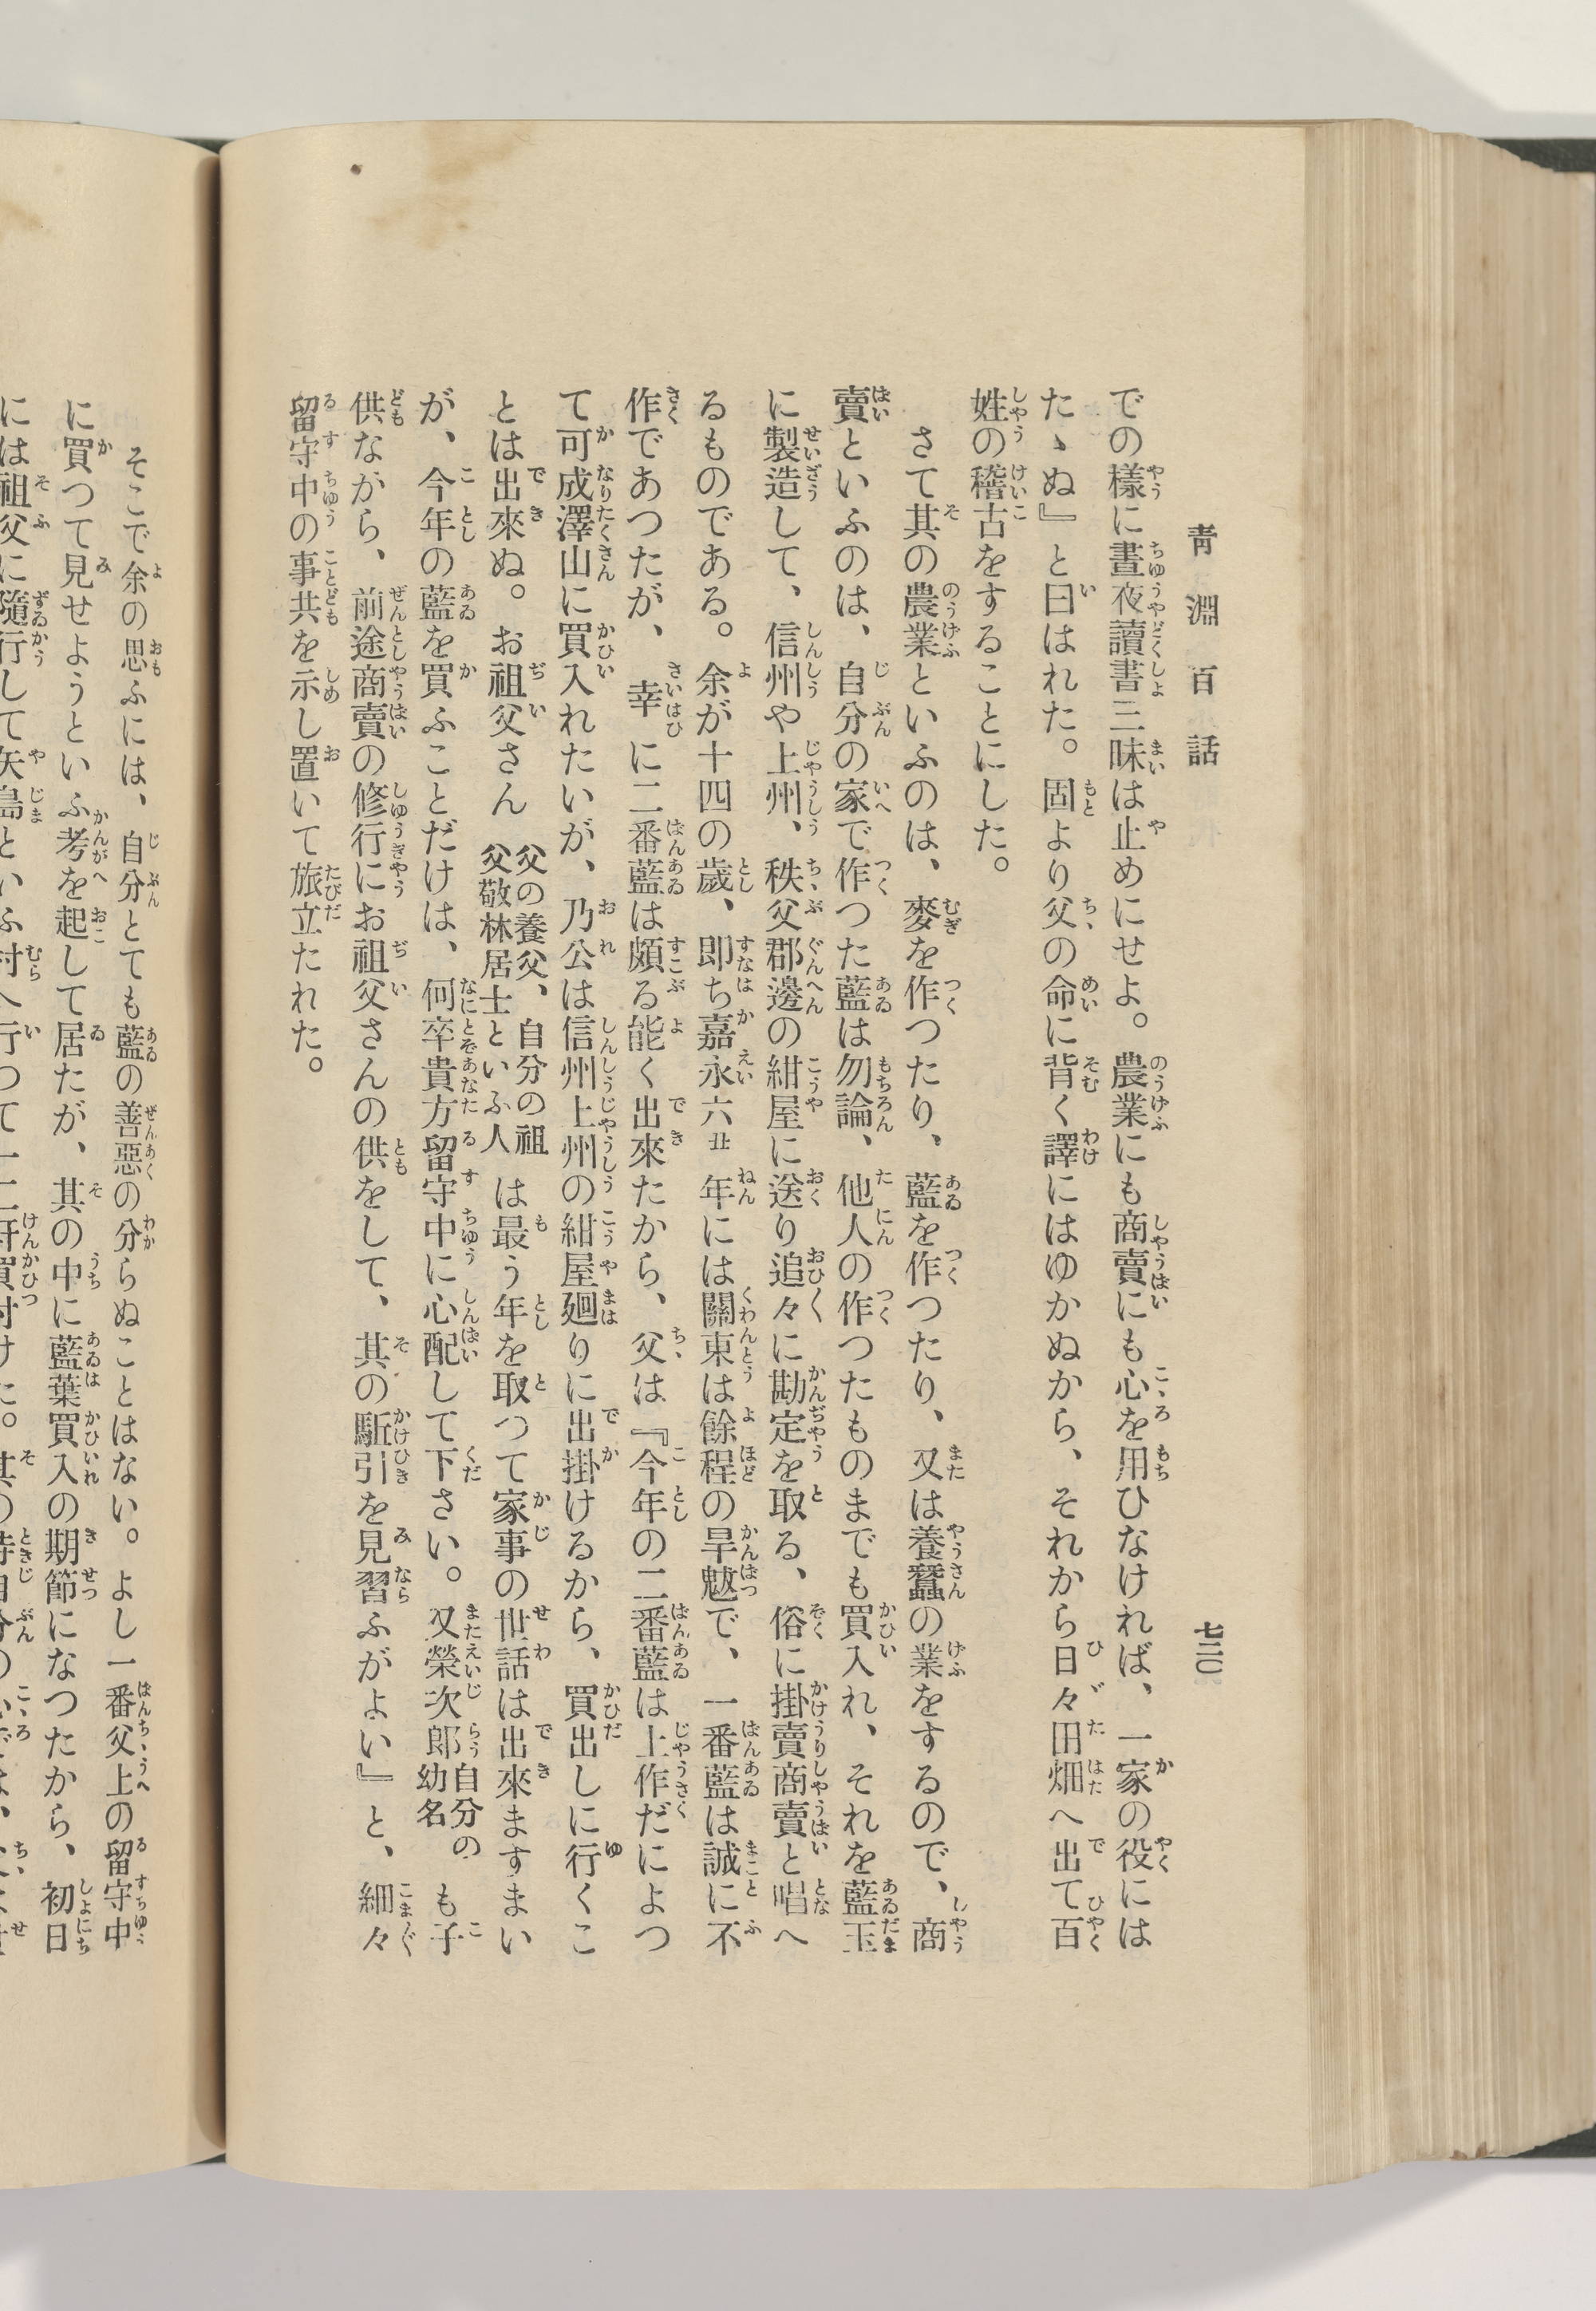 青淵百話
七三〇
での樣に晝夜讀書三昧は止めにせよ。農業にも商賣にも心を用ひなければ、一家の役には
たゝぬ』と曰はれた。固より父の命に背く譯にはゆかぬから、それから日々田畑へ出て百
姓の稽古をすることにした。
さて其の農業といふのは、麥を作つたり、藍を作つたり、又は養蠶の業をするので、商
賣といふのは、自分の家で作つた藍は勿論、他人の作つたものまでも買入れ、それを藍玉
に製造して、信州や上州、秩父郡邊の紺屋に送り追々に勘定を取る、俗に掛賣商賣と唱へ
るものである。余が十四の歲、即ち嘉永六丑年には關東は餘程の旱魃で、一番藍は誠に不
作であつたが、幸に二番藍は頗る能く出來たから、父は『今年の二番藍は上作だによつ
て可成澤山に買入れたいが、乃公は信州上州の紺屋廻りに出掛けるから、買出しに行くこ
とは出來ぬ。お祖父さん父の養父、自分の祖父敬林居士といふ人は最う年を取つて家事の世話は出來ますまい
が、今年の藍を買ふことだけは、何卒貴方留守中に心配して下さい。又榮次郎自分の幼名も子
供ながら、前途商賣の修行にお祖父さんの供をして、其の駈引を見習ふがよい』と、細々
留守中の事共を示し置いて旅立たれた。
そこで余の思ふには、自分とても藍の善惡の分らぬことはない。よし一番父上の留守中
に買つて見せようといふ考を起して居たが、其の中に藍葉買入の期節になつたから、初日
には祖父に隨行して矢島といふ村へ行つて一二軒買付けた。其の時自分の